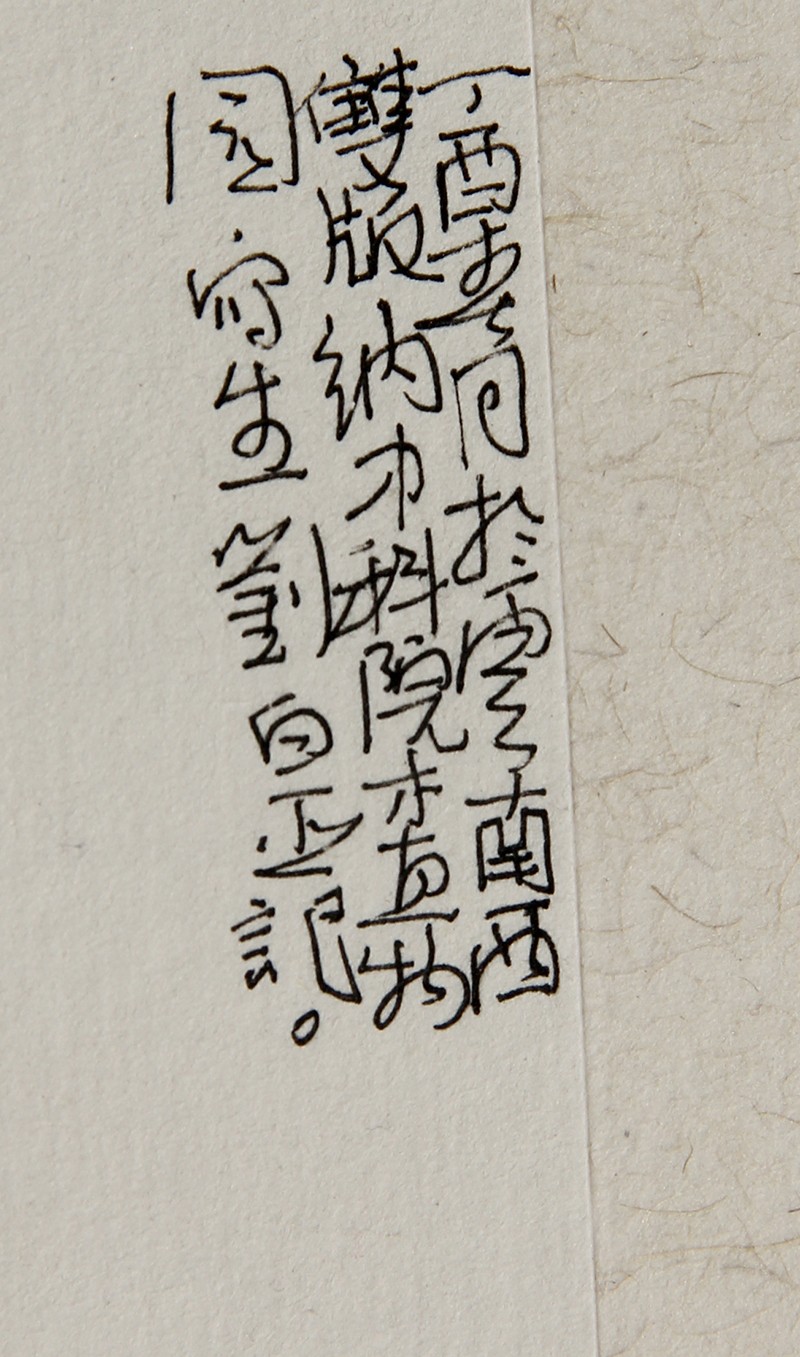 丁酉春月於雲南西
雙版納中科院植物
園寫生劉白正記。